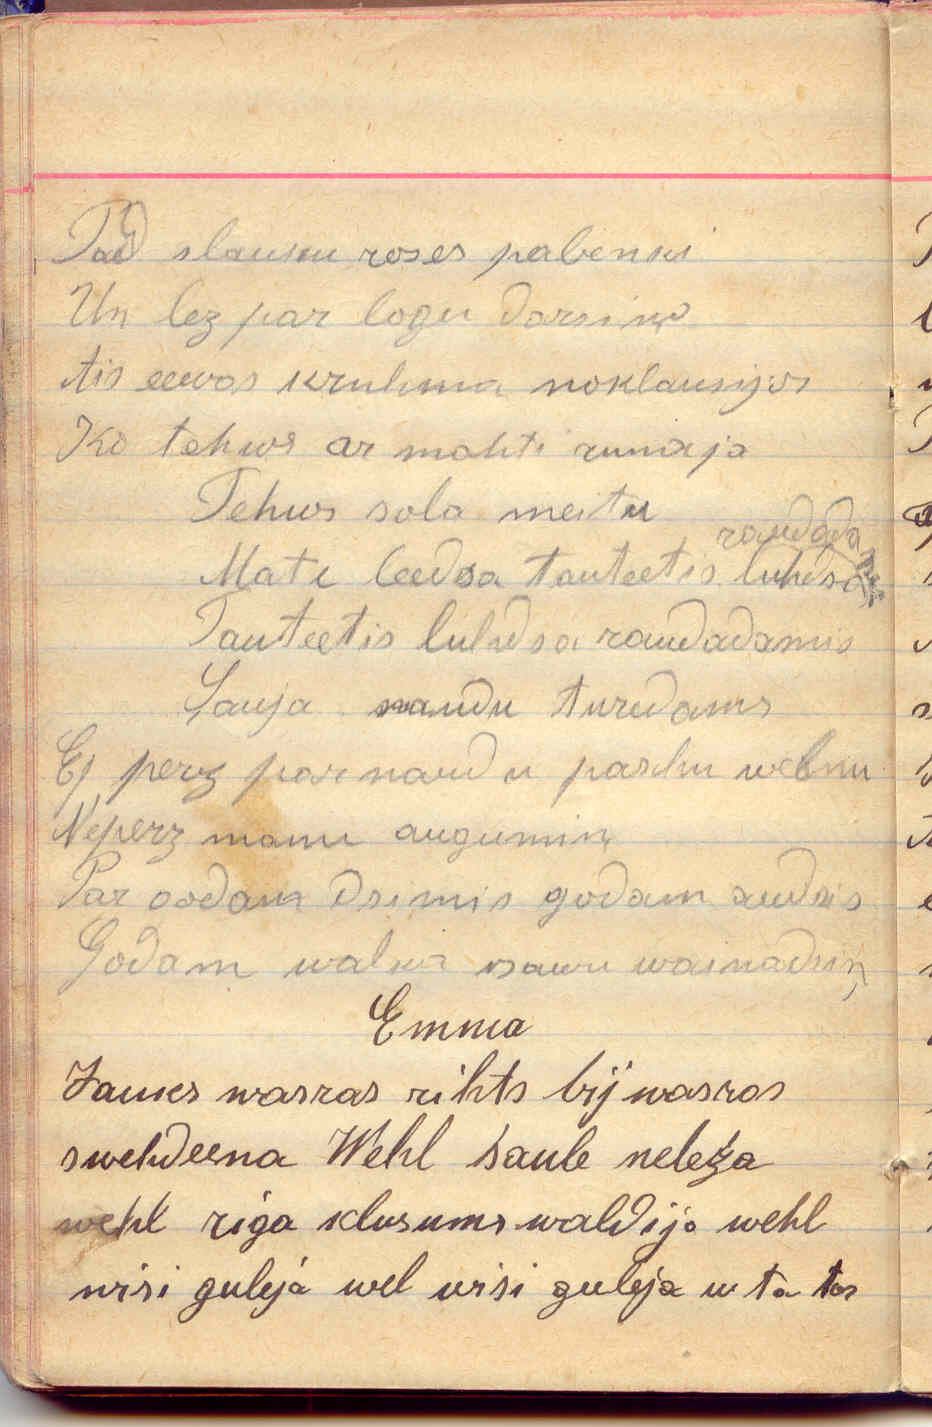 Tad slauku roses pabenki
Un lez par logu darsiņo
Ais eewas kruhma noklausijos
Ko tehws ar mahti runaja
Tehws sola meitu
raudada
Mate leedsa tauteetis luhdsa
Tauteetis luhdsa raudadams
Sauja naudu turedams
Ej perz par naudu paschu welnu
Neperz manu augumiņ
Par godam dsimis godam audsis
Godam walka sawu wainadsiņ
Emma
Jaukes wasras rihts bij wasras
swehdeena Wehl saule neleza
wehl riga klusums waldija wehl
wisi guleja wel wisi guleja u ta tas